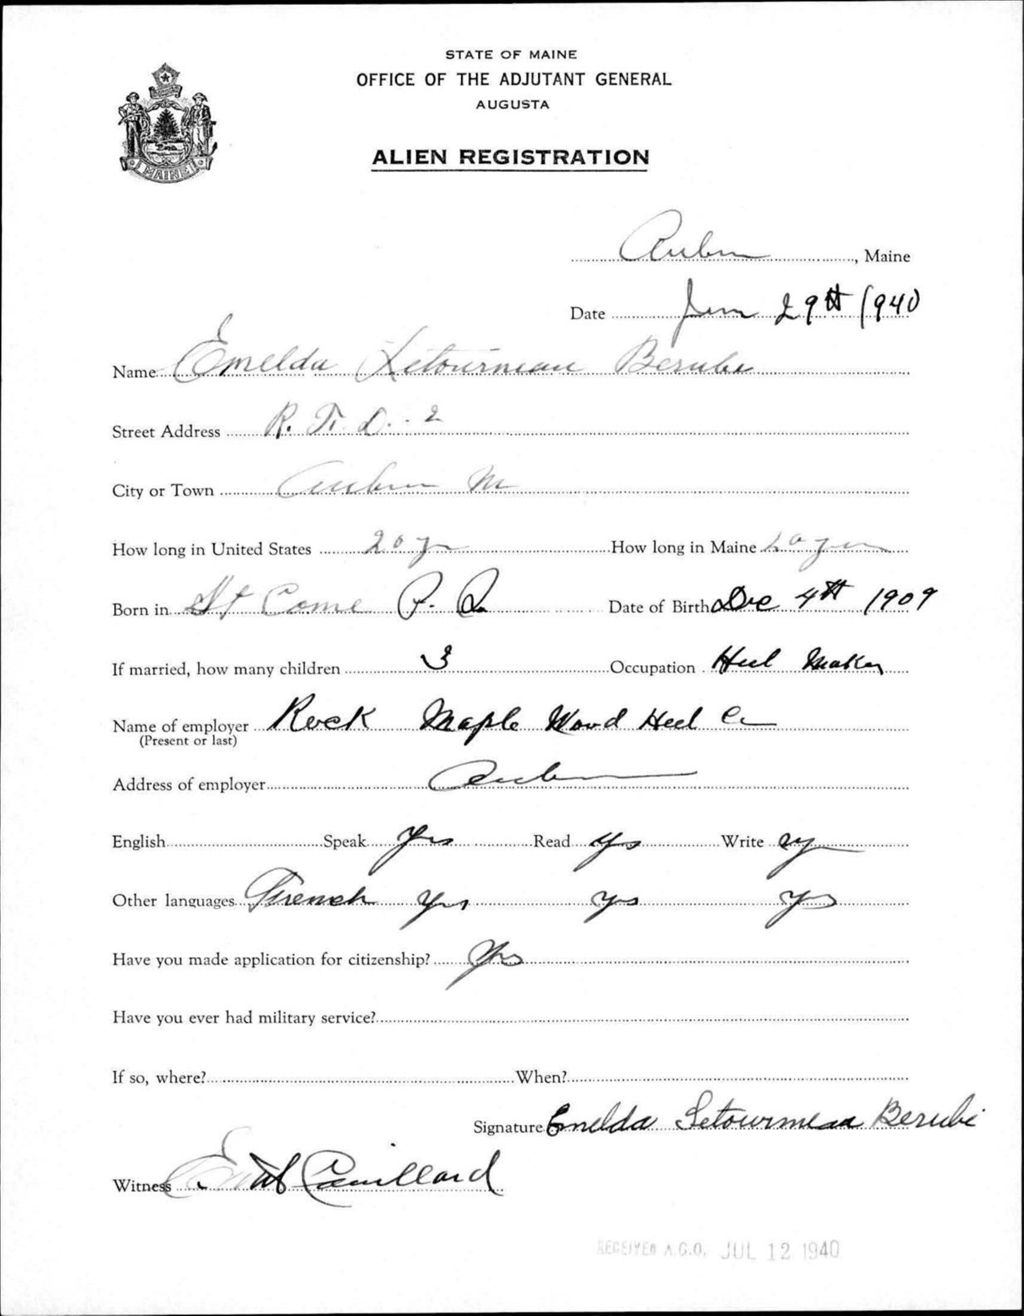 STATE OF MAINE
OFFICE OF THE ADJUTANT GENERAL
AUGUSTA
ALIEN REGISTRATION
MAINE
Auburn, Maine
Date Jun 29th 1940
Name Emelda Letourneau Berube
Street Address R. F. D. 2
City or Town Auburn M
How long in United States 20 yr How long in Maine 20 yr
Born in St Come P. Q. Date of Birth Dec 4th 1909
If married, how many children 3 Occupation Heel Maker
Name of employer Rock Maple Wood Heel Co
(Present or last)
Address of employer Auburn
English Speak yes Read yes Write yes
Other languages French yes yes yes
Have you made application for citizenship? Yes
Have you ever had military service?
If so, where? When?
Signature Emelda Letourneau Berube
Witness
RECEIVED A.G.O. JUL 12 1940